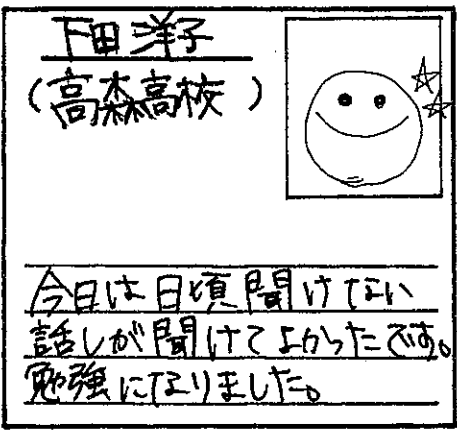 下田洋子
(高森高校)
今日は日頃聞けない
話しが聞けてよかったです。
勉強になりました。